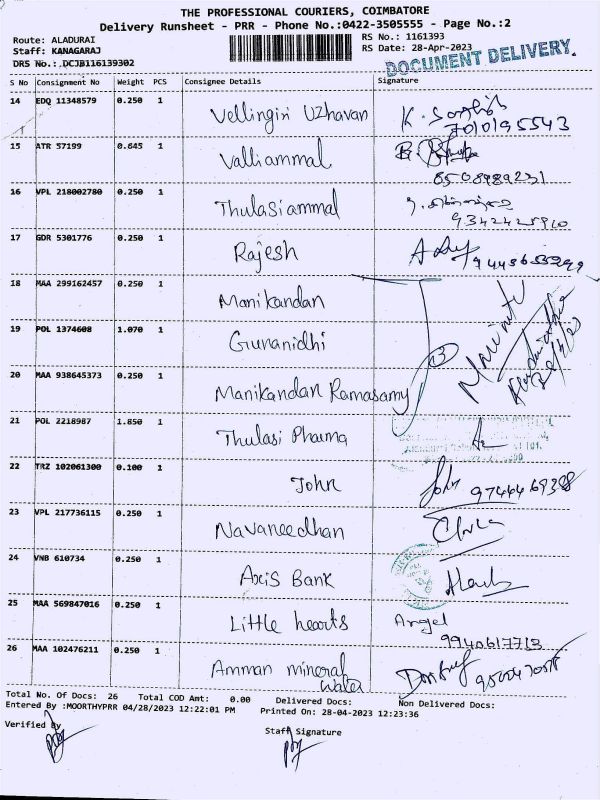 THE PROFESSIONAL COURIERS, COIMBATORE
Delivery Runsheet - PRR - Phone No.:0422-3505555 - Page No.:2
Route: ALADURAI
RS No.: 1161393
Staff: KANAGARAJ
RS Date: 28-Apr-2023
DRS No.:.DCJB116139302
DOCUMENT DELIVERY.
S No Consignment No Weight PCS Consignee Details Signature
14 EDQ 11348579 0.250 1 Vellingiri Uzhavan
7010195543
15 ATR 57199 0.645 1 Valliammal
8508989231
16 VPL 218002780 0.250 1 Thulasiammal
9342425910
17 GDR 5301776 0.250 1 Rajesh
18 MAA 299162457 0.250 1 Manikandan
19 POL 1374608 1.070 1 Gunanidhi
20 MAA 938645373 0.250 1 Manikandan Ramasamy
21 POL 2218987 1.850 1 Thulasi Pharma
22 TRZ 102061300 0.100 1 John John 9744469398
23 VPL 217736115 0.250 1 Navaneedhan
24 VNB 610734 0.250 1 Axis Bank
25 MAA 569847016 0.250 1 Little hearts Angel
9940617713
26 MAA 102476211 0.250 1 Amman mineral
water
Total No. Of Docs: 26 Total COD Amt: 0.00 Delivered Docs: Non Delivered Docs:
Entered By :MOORTHYPRR 04/28/2023 12:22:01 PM Printed On: 28-04-2023 12:23:36
Verified By
Staff Signature